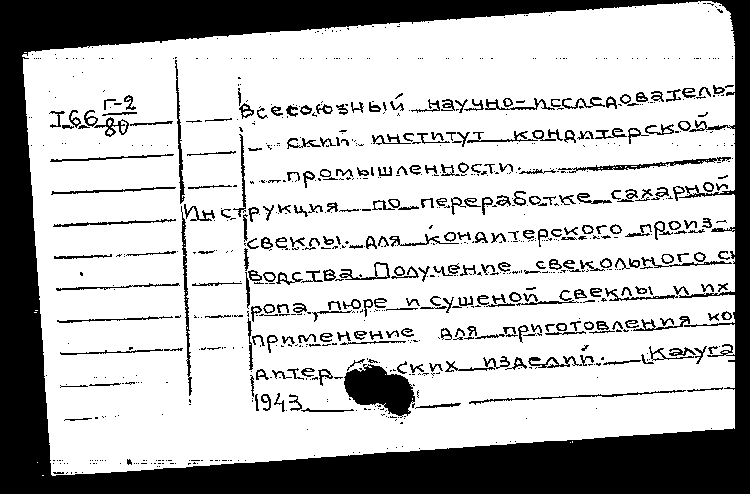 I66 Г-2/80
Всесоюзный научно-исследователь-
ский институт кондитерской
промышленности.
Инструкция по переработке сахарной
свеклы для кондитерского произ-
водства. Получение свекольного си
ропа, пюре и сушеной свеклы и их
применение для приготовления ко
дитер ских изделий. Калуга
1943.